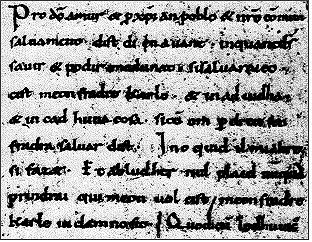 Pro dõ amur & p xp̃ian poblo & nr̃o cõmun
saluament. dist di en auant. inquant d̃s
sauir & podir me dunat. si saluarai eo
cist meon fradre Karlo. & in ad iudha
& in cad huna cosa. sicũ om p dreit son
fradra saluar dist. In o quid il mi altre
si fazet. Et ab ludher nul plaid nũquã
prindrai qui meon uol cist meon fradre
Karle in damno sit. Quod cũ lodhuuic